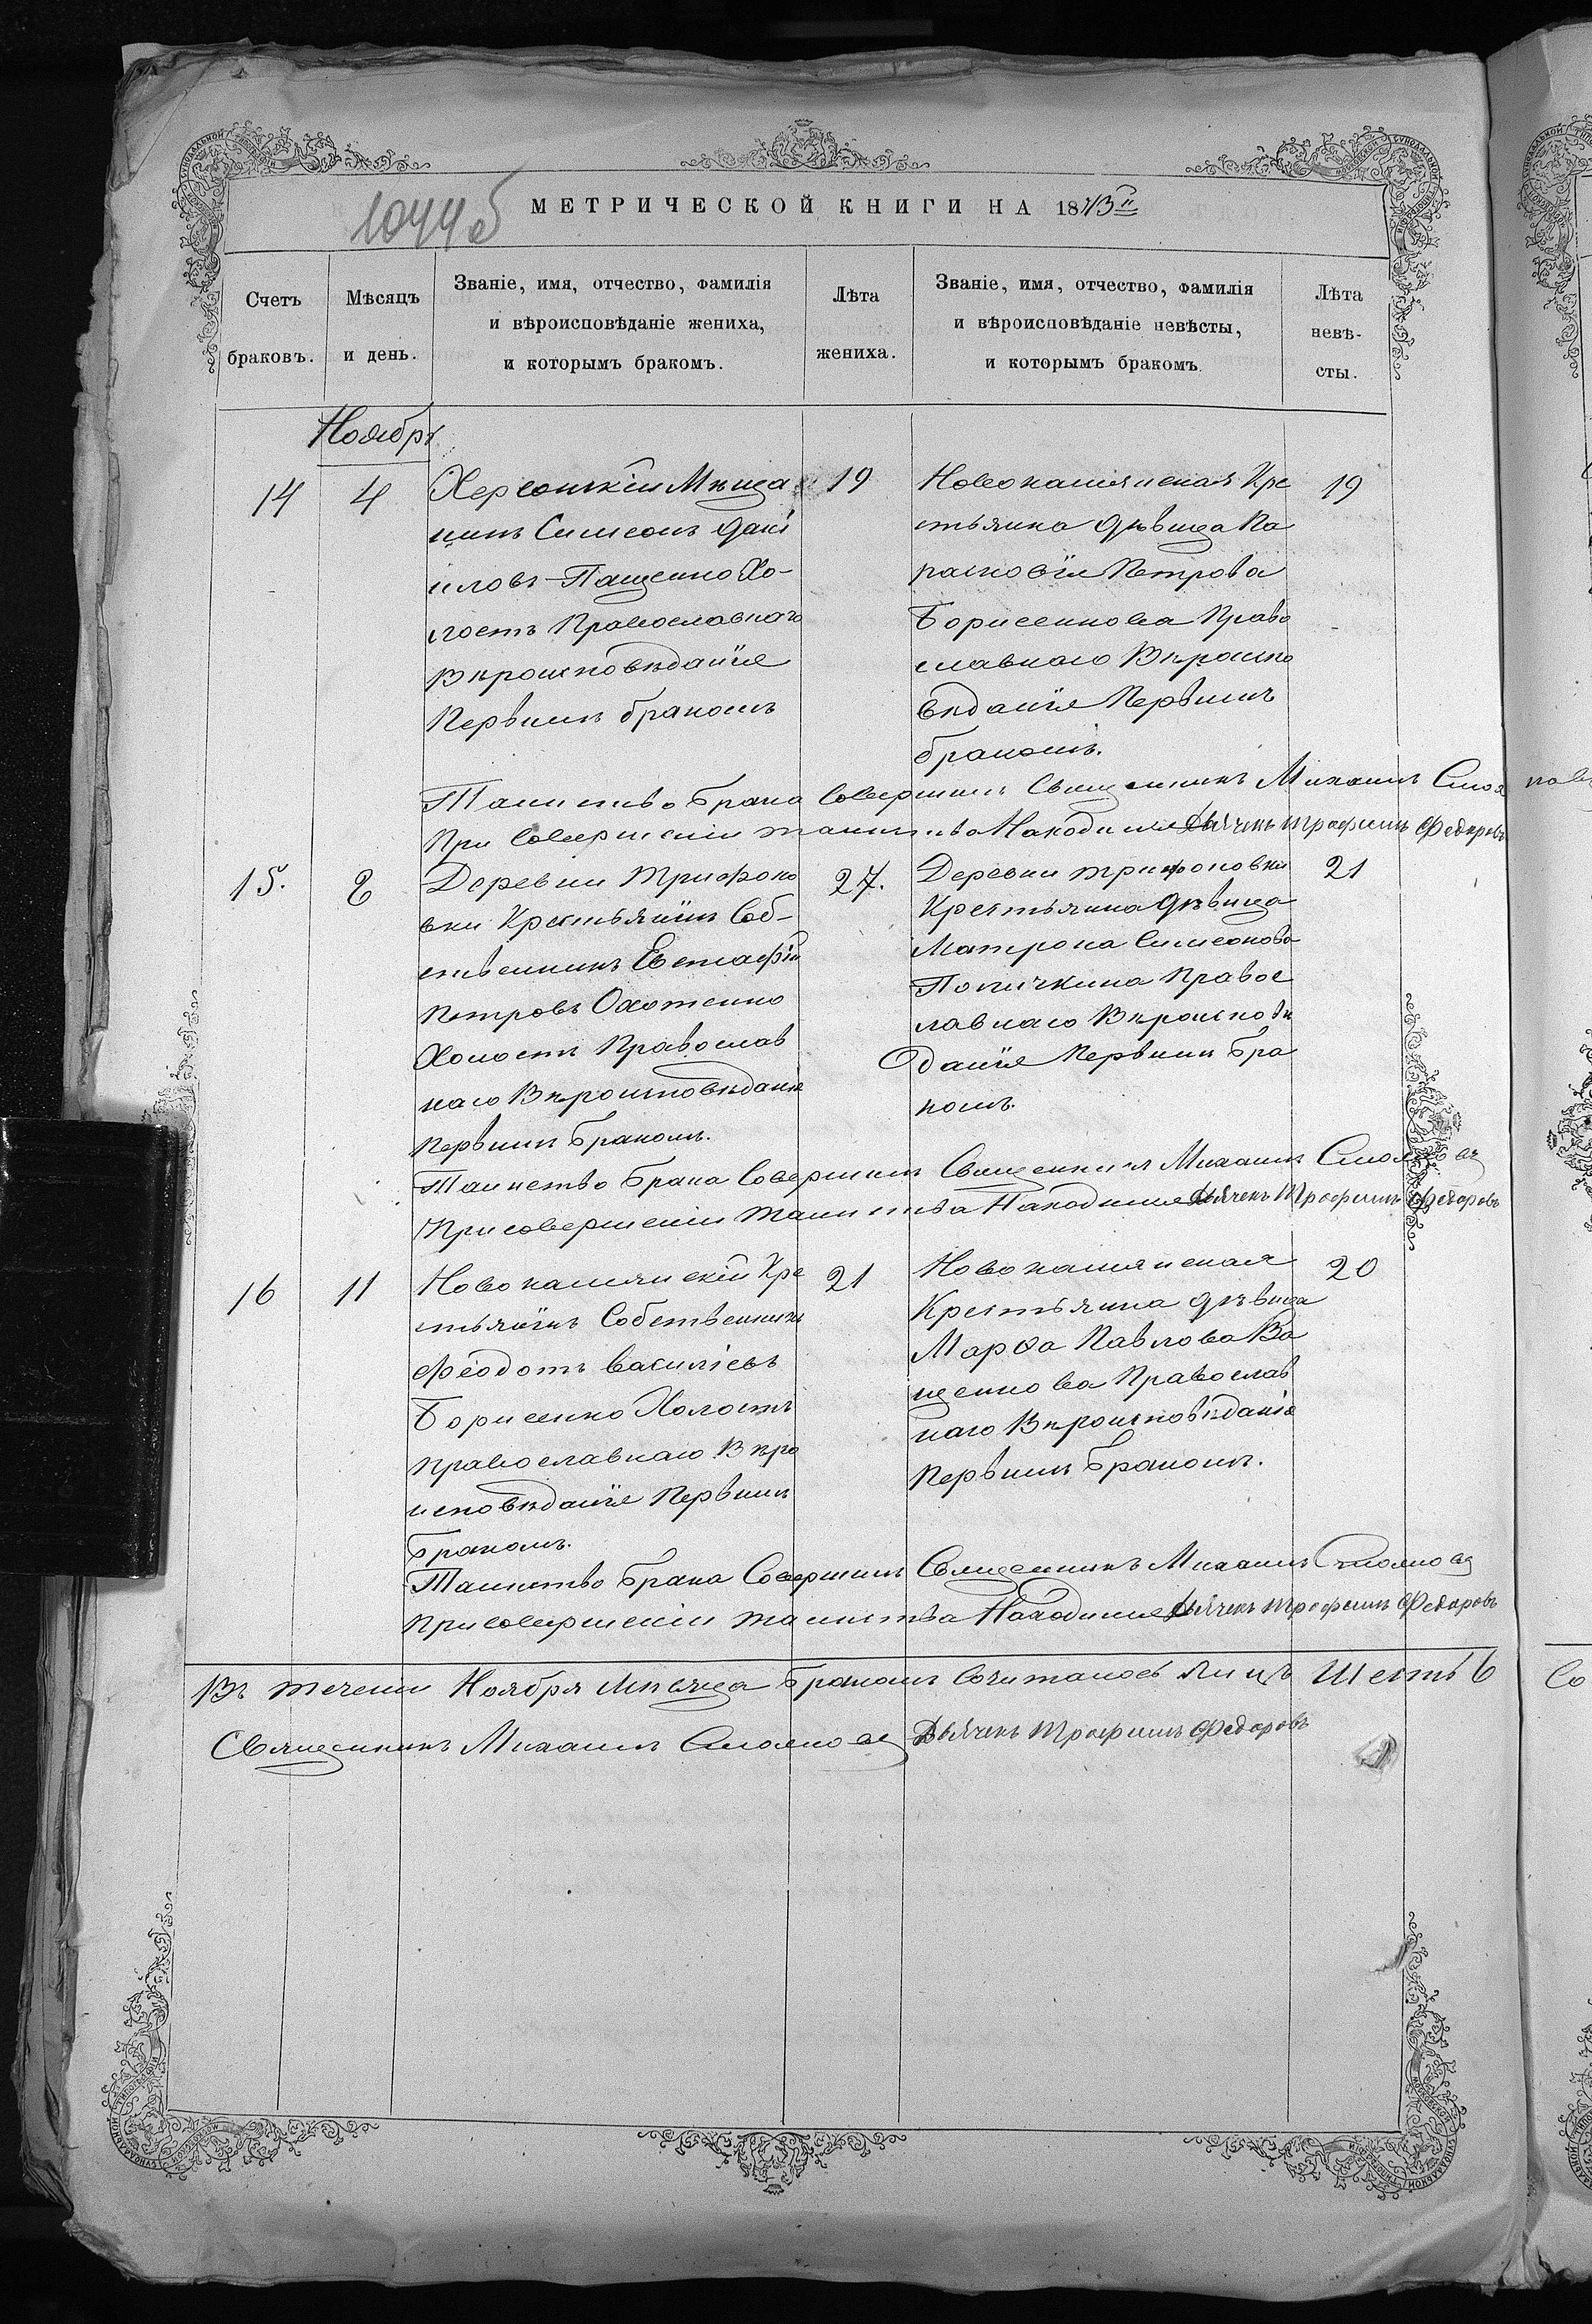 1044об
МЕТРИЧЕСКОЙ КНИГИ НА 1873й
Счетъ браковъ.
Мѣсяцъ и день.
Званіе, имя, отчество, фамилія
и вѣроисповѣданіе жениха,
и которымъ бракомъ.
Лѣта жениха.
Званіе, имя, отчество, фамилія
и вѣроисповѣданіе невѣсты,
и которымъ бракомъ.
Лѣта невѣ-
сты.
Ноябрь
14
4
Херсонскій Мѣща
нинъ Симеонъ Дані
иловъ Пащенко Хо-
лостъ Православнаго
Вѣроисповѣданія
Первымъ бракомъ
19
Новокамянская Кре
стьянка дѣвица Па
расковія Петрова
Борисенкова Право
славнаго Вѣроиспо
вѣданія Первымъ
бракомъ.
19
Таинство брака Совершилъ Священникъ Михаилъ
При Совершеніи таинства Находился Дьячекъ Трофимъ Федоровъ
15.
8
Деревни Трифоно
вки Крестьянинъ Соб-
ственникъ Евстафій
Петровъ Охотенко
Холостъ Православ
наго Вѣроисповѣданія
Первымъ бракомъ.
27.
Деревни Трифоновки
Крестьянка дѣвица
Матрона Симеонова
Правос
лавнаго Вѣроисповѣ
данія Первымъ бра
комъ.
21
Таинство брака Совершилъ Священникъ Михаилъ
При совершеніи таинства Находился Дьячекъ Трофимъ Федоровъ
16
11
Новокамянскій Кре
стьянинъ Собственникъ
Феодотъ Василіевъ
Борисенко Холостъ
Православнаго Вѣро
исповѣданія Первымъ
бракомъ.
21
Новокамянская
Крестьянка дѣвица
Марѳа Павлова Ва
щенкова Православ
наго Вѣроисповѣданія
Первымъ бракомъ.
20
Таинство брака Совершилъ Священникъ Михаилъ
При совершеніи таинства Находился Дьячекъ Трофимъ Федоровъ
Въ теченіи Ноября Мѣсяца бракомъ Сочиталось лицъ Шесть 6
Священникъ Михаилъ
Дьячекъ Трофимъ Федоровъ
Со